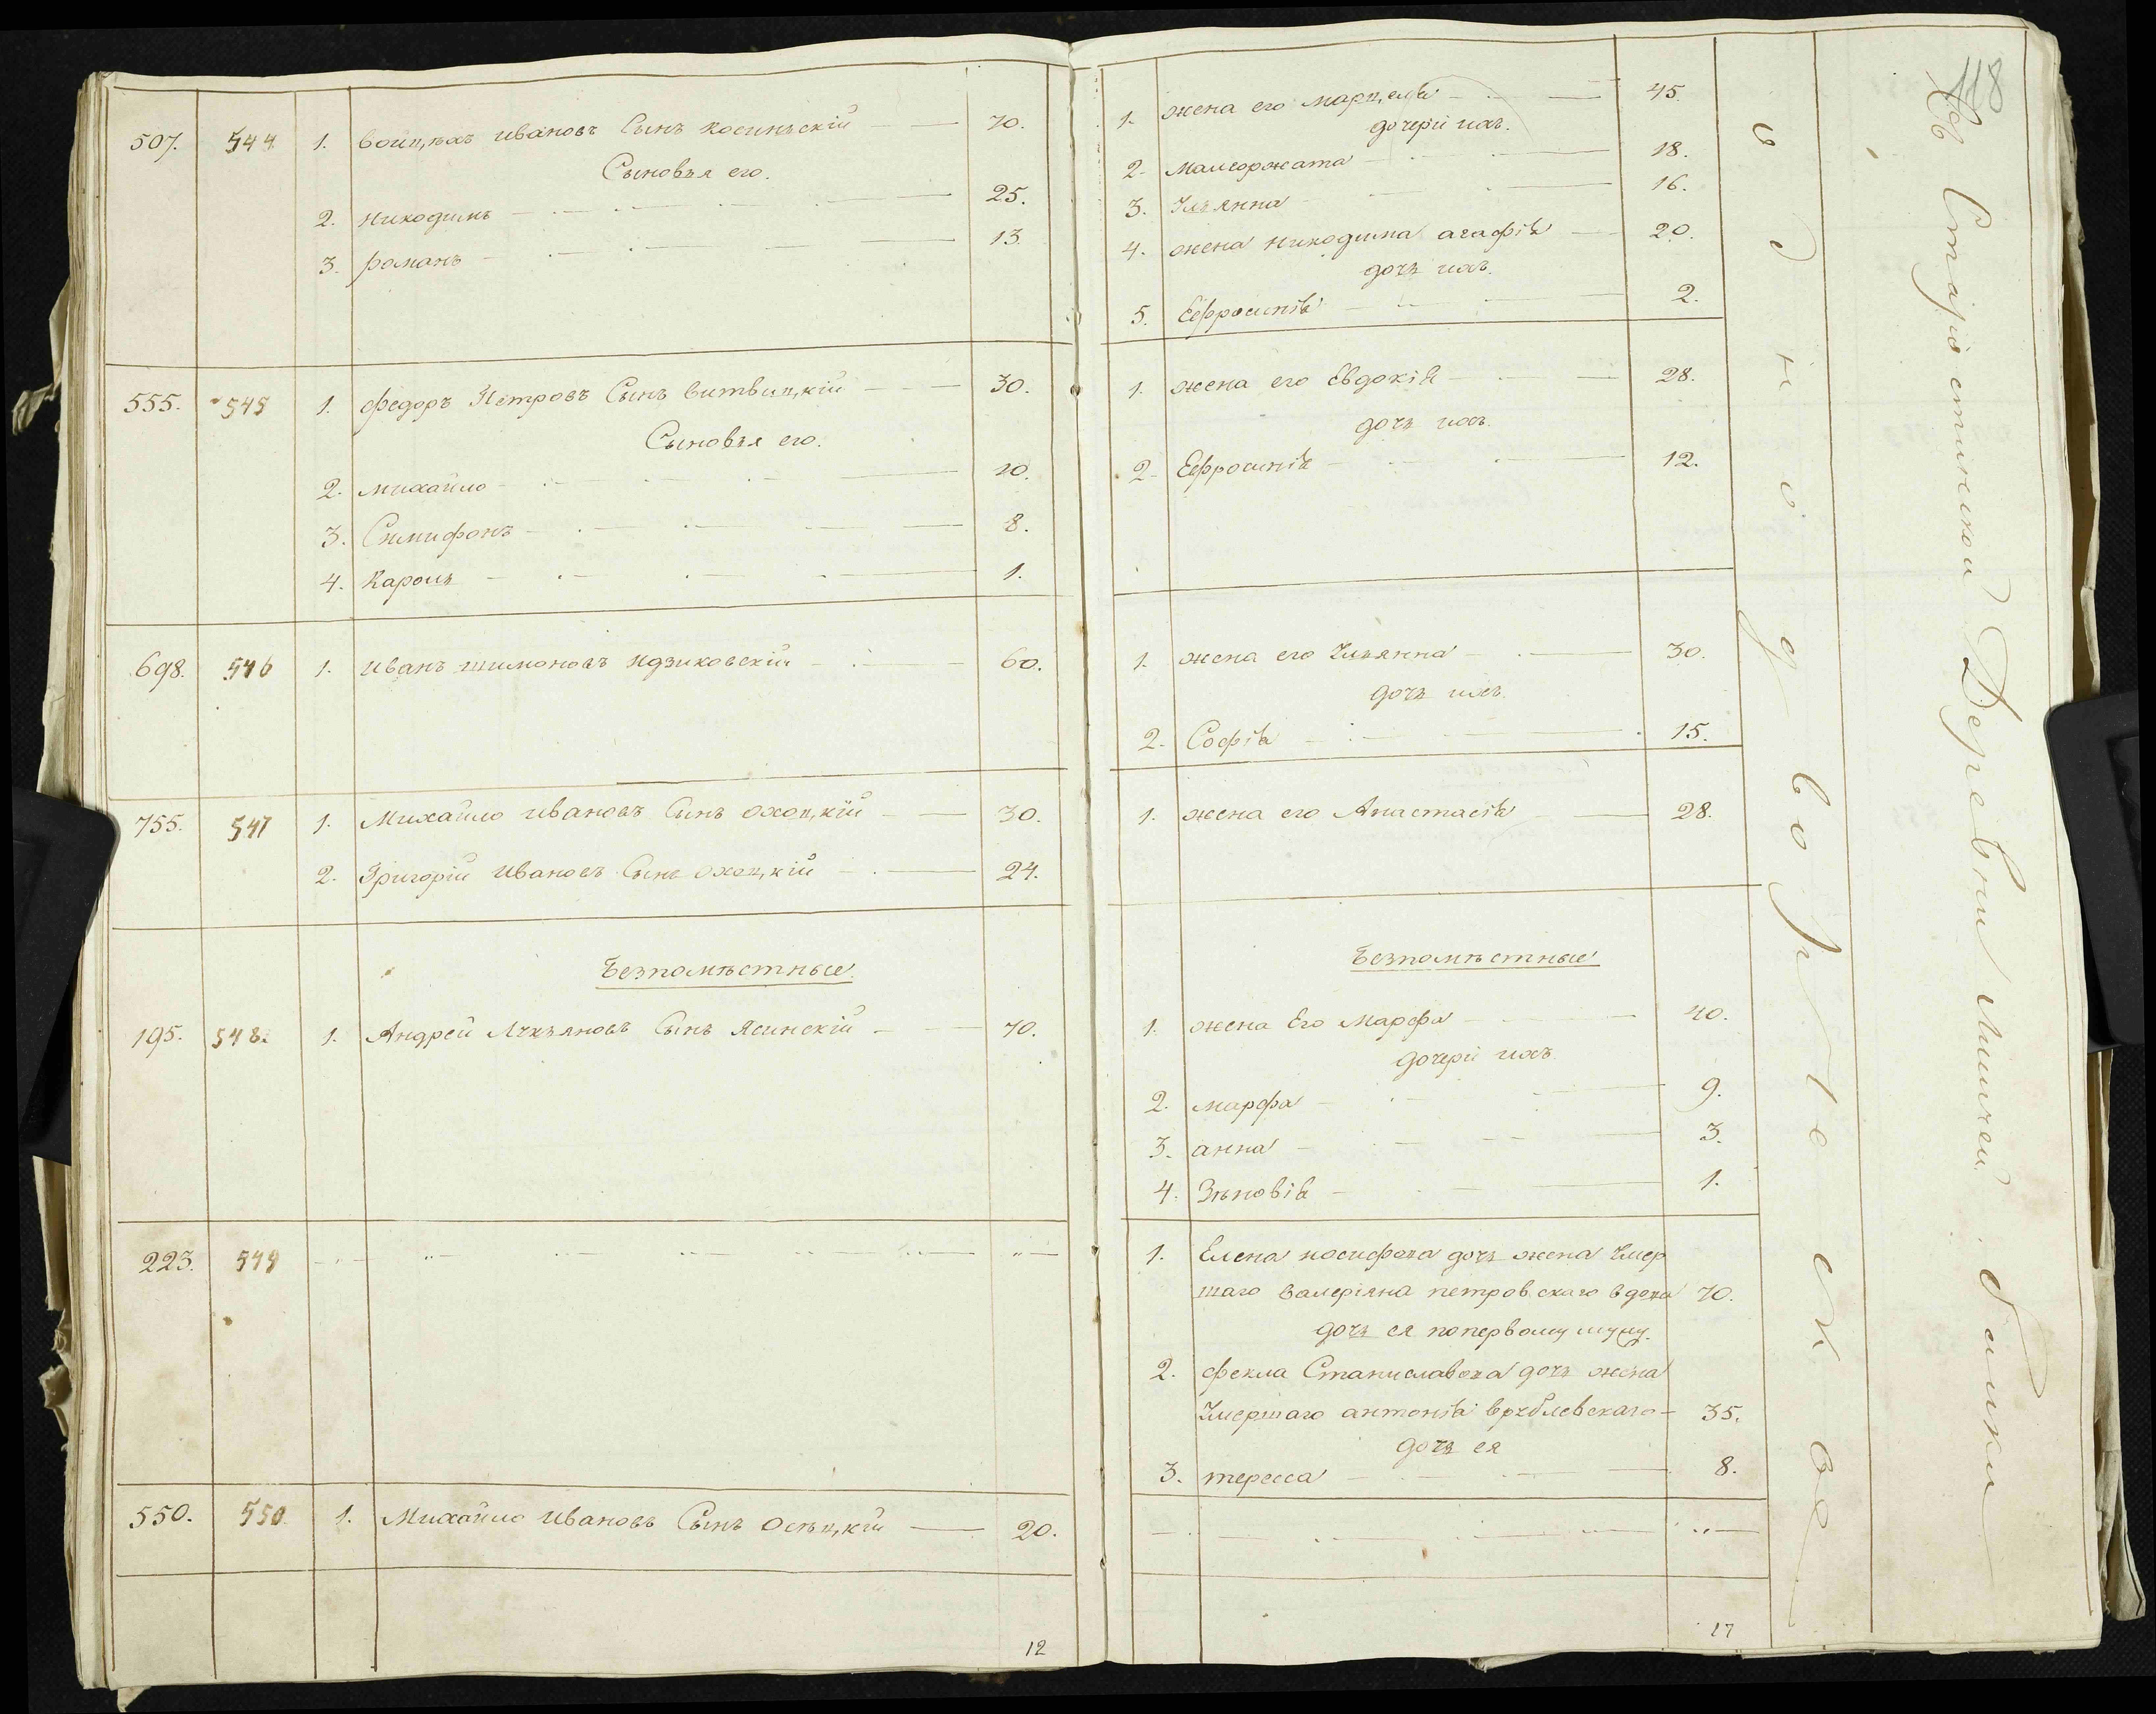 507. 544 1. Войцѣхъ Ивановъ Сынъ Косинскій 70.
Сыновья его.
2. Никодимъ 25.
3. романъ 13.
555. 545 1. Федоръ Петровъ Сынъ Витвицкій 30.
Сыновья его.
2. михайло 10.
3. Симифонъ 8.
4. Кароль 1.
698. 546 1. Иванъ шимоновъ Идзиковскій 60.
755. 547 1. Михайло Ивановъ Сынъ Охоцкій 30.
2. Григорій Ивановъ Сынъ Охоцкій 24.
Безпомѣстные.
195. 548. 1. Андрей Лукьяновъ Сынъ Ясинскій 70.
223. 549
550. 550 1. Михайло Ивановъ Сынъ Осѣцкій 20.
12
118
1. жена его марцеля 45.
дочери ихъ.
2. малгоржата 18.
3. Ульянна 16.
4. жена никодима агафія 20.
дочь ихъ.
5. Ефросинія 2.
1. жена его Евдокія 28.
дочь ихъ.
2. Ефросинія 12.
1. жена его Ульянна 30.
дочь ихъ.
2. Софія 15.
1. жена его Анастасія 28.
Безпомѣстные
1. жена Его Марфа 40.
дочери ихъ
2. марфа 9.
3. анна 3.
4. Зѣновія 1.
1. Елена иосифова дочь жена Умер
шаго валеріяна петровскаго вдова 70.
дочь ея по первому мужу.
2. фекла Станиславова дочь жена
Умершаго антонія врублевскаго 35.
дочь ея
3. тересса 8.
17
однодворческое
Старо
Деревни